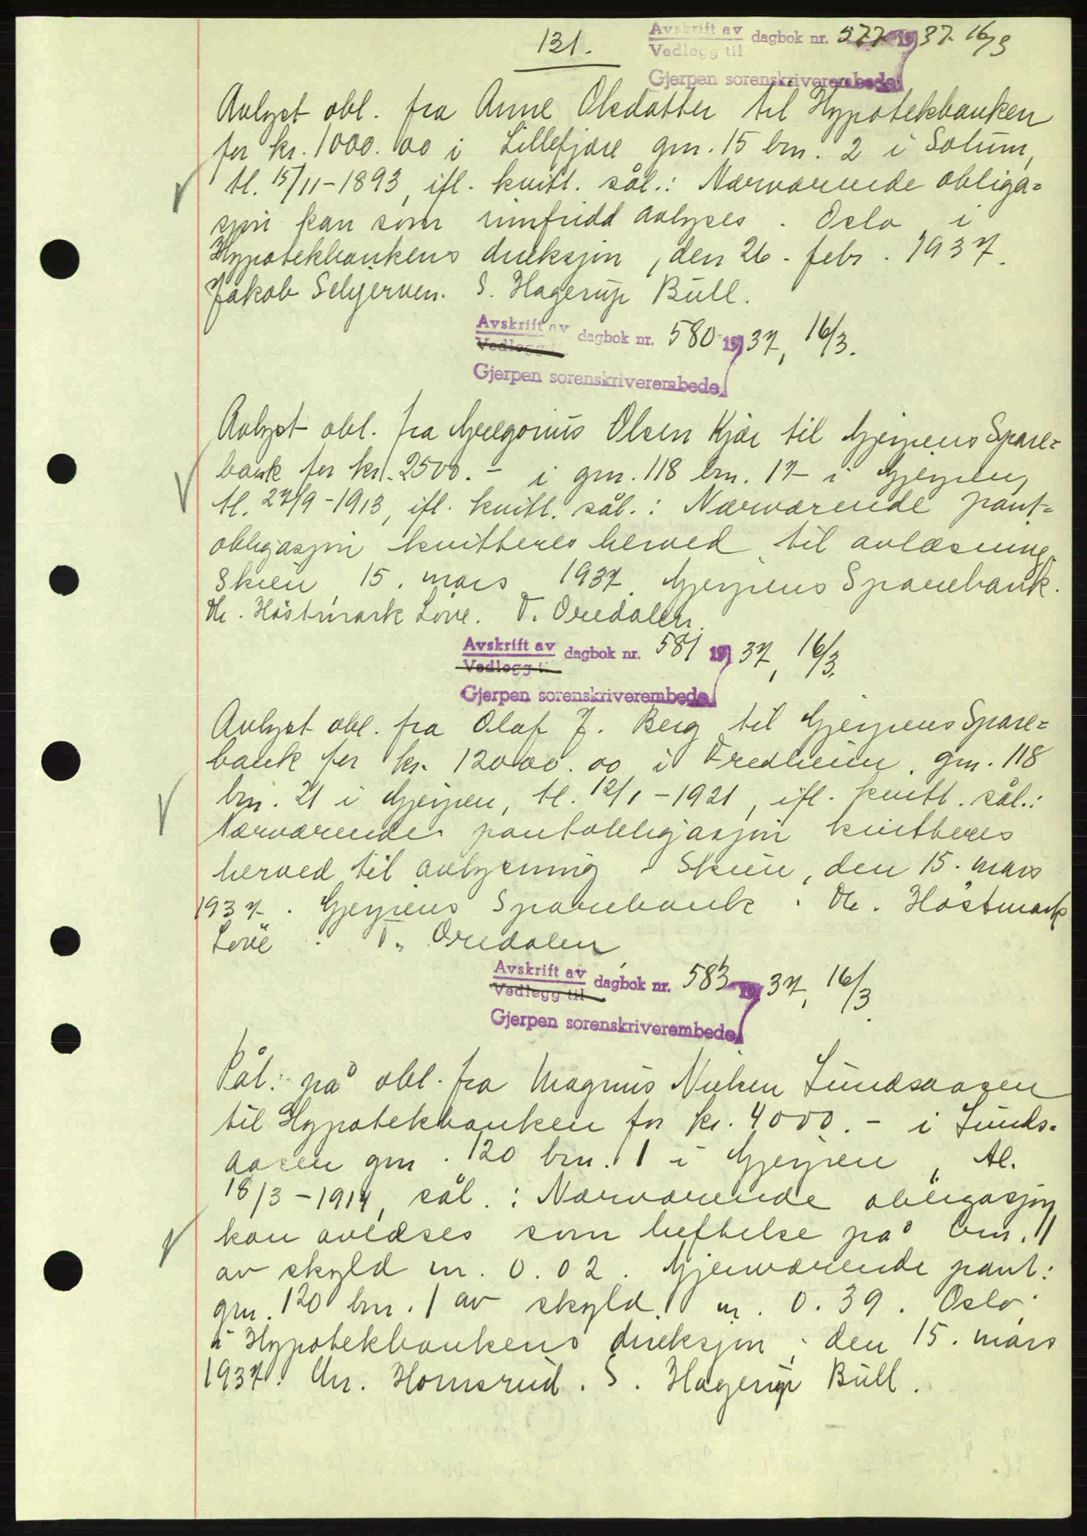 131.
Avskrift av
Vedlegg til dagbok nr. 577 1937 16/3
Gjerpen sorenskriverembede
Avlyst obl. fra Anne Olsdatter til Hypotekbanken
for kr. 1000.00 i Lillefjære gnr. 15 bnr. 2 i Solum,
tl. 15/11-1893, ifl. kvitt. sål.: Nærværende obliga=
sjon kan som innfridd avlyses. Oslo i
Hypotekbankens direksjon, den 26. febr. 1937.
Jakob Schjerven. S. Hagerup Bull.
Avskrift av
Vedlegg til dagbok nr. 580 1937, 16/3.
Gjerpen sorenskriverembede
Avlyst obl. fra Gregorius Olsen Kjær til Gjerpens Spare=
bank for kr. 2500.- i gnr. 118 bnr. 17 i Gjerpen,
tl. 27/9-1913, ifl. kvitt. sål.: Nærværende pant=
obligasjon kvitteres herved til avlæsning.
Skien 15. mars 1937. Gjerpens Sparebank.
Hr. Høstmark Love. T. Oredalen.
Avskrift av
Vedlegg til dagbok nr. 581 1937, 16/3.
Gjerpen sorenskriverembede
Avlyst obl. fra Olaf J. Berg til Gjerpens Spare=
bank for kr. 12000.00 i Fredheim, gnr. 118
bnr. 21 i Gjerpen, tl. 12/1-1921, ifl. kvitt. sål.:
Nærværende pantobligasjon kvitteres
herved til avlysning. Skien, den 15. mars
1937. Gjerpens Sparebank. Hr. Høstmark
Love. T. Oredalen
Avskrift av
Vedlegg til dagbok nr. 583 1937, 16/3.
Gjerpen sorenskriverembede
Pål. på obl. fra Magnus Nielsen Lundsaasen
til Hypotekbanken for kr. 4000.- i Lunds-
aasen gnr. 120 bnr. 1 i Gjerpen, tl.
18/3-1914, sål.: Nærværende obligasjon
kan avlæses som heftelse på bnr. 11
av skyld m. 0.02. Gjenværende pant:
gnr. 120 bnr. 1 av skyld m. 0.39. Oslo
i Hypotekbankens direksjon, den 15. mars
1937. Chr. Homsrud. S. Hagerup Bull.